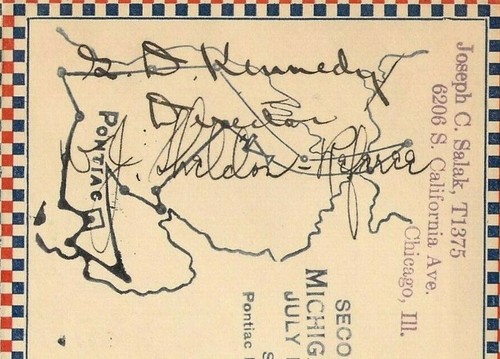 G. B. Kennedy
Director
J. Sheldon - Referee
PONTIAC
Joseph C. Salak, T1375
6206 S. California Ave.
Chicago, Ill.
SECO
MICHIG
JULY
S
Pontiac